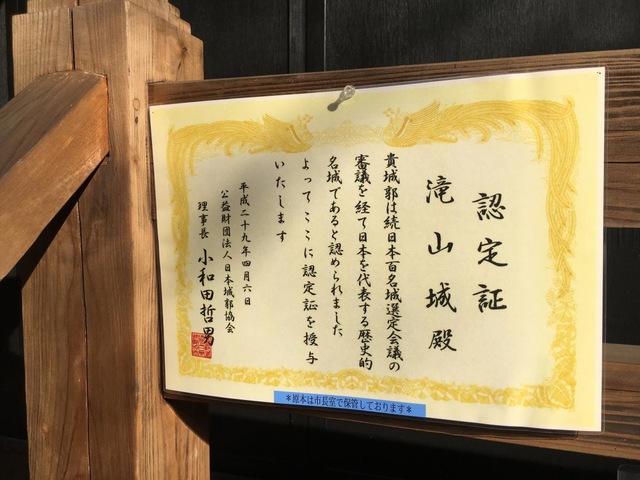 認定証
滝山城殿
貴城郭は続日本百名城選定会議の
審議を経て日本を代表する歴史的
名城であると認められました
よってここに認定証を授与
いたします
平成二十九年四月六日
公益財団法人日本城郭協会
理事長 小和田哲男
＊原本は市長室で保管しております＊